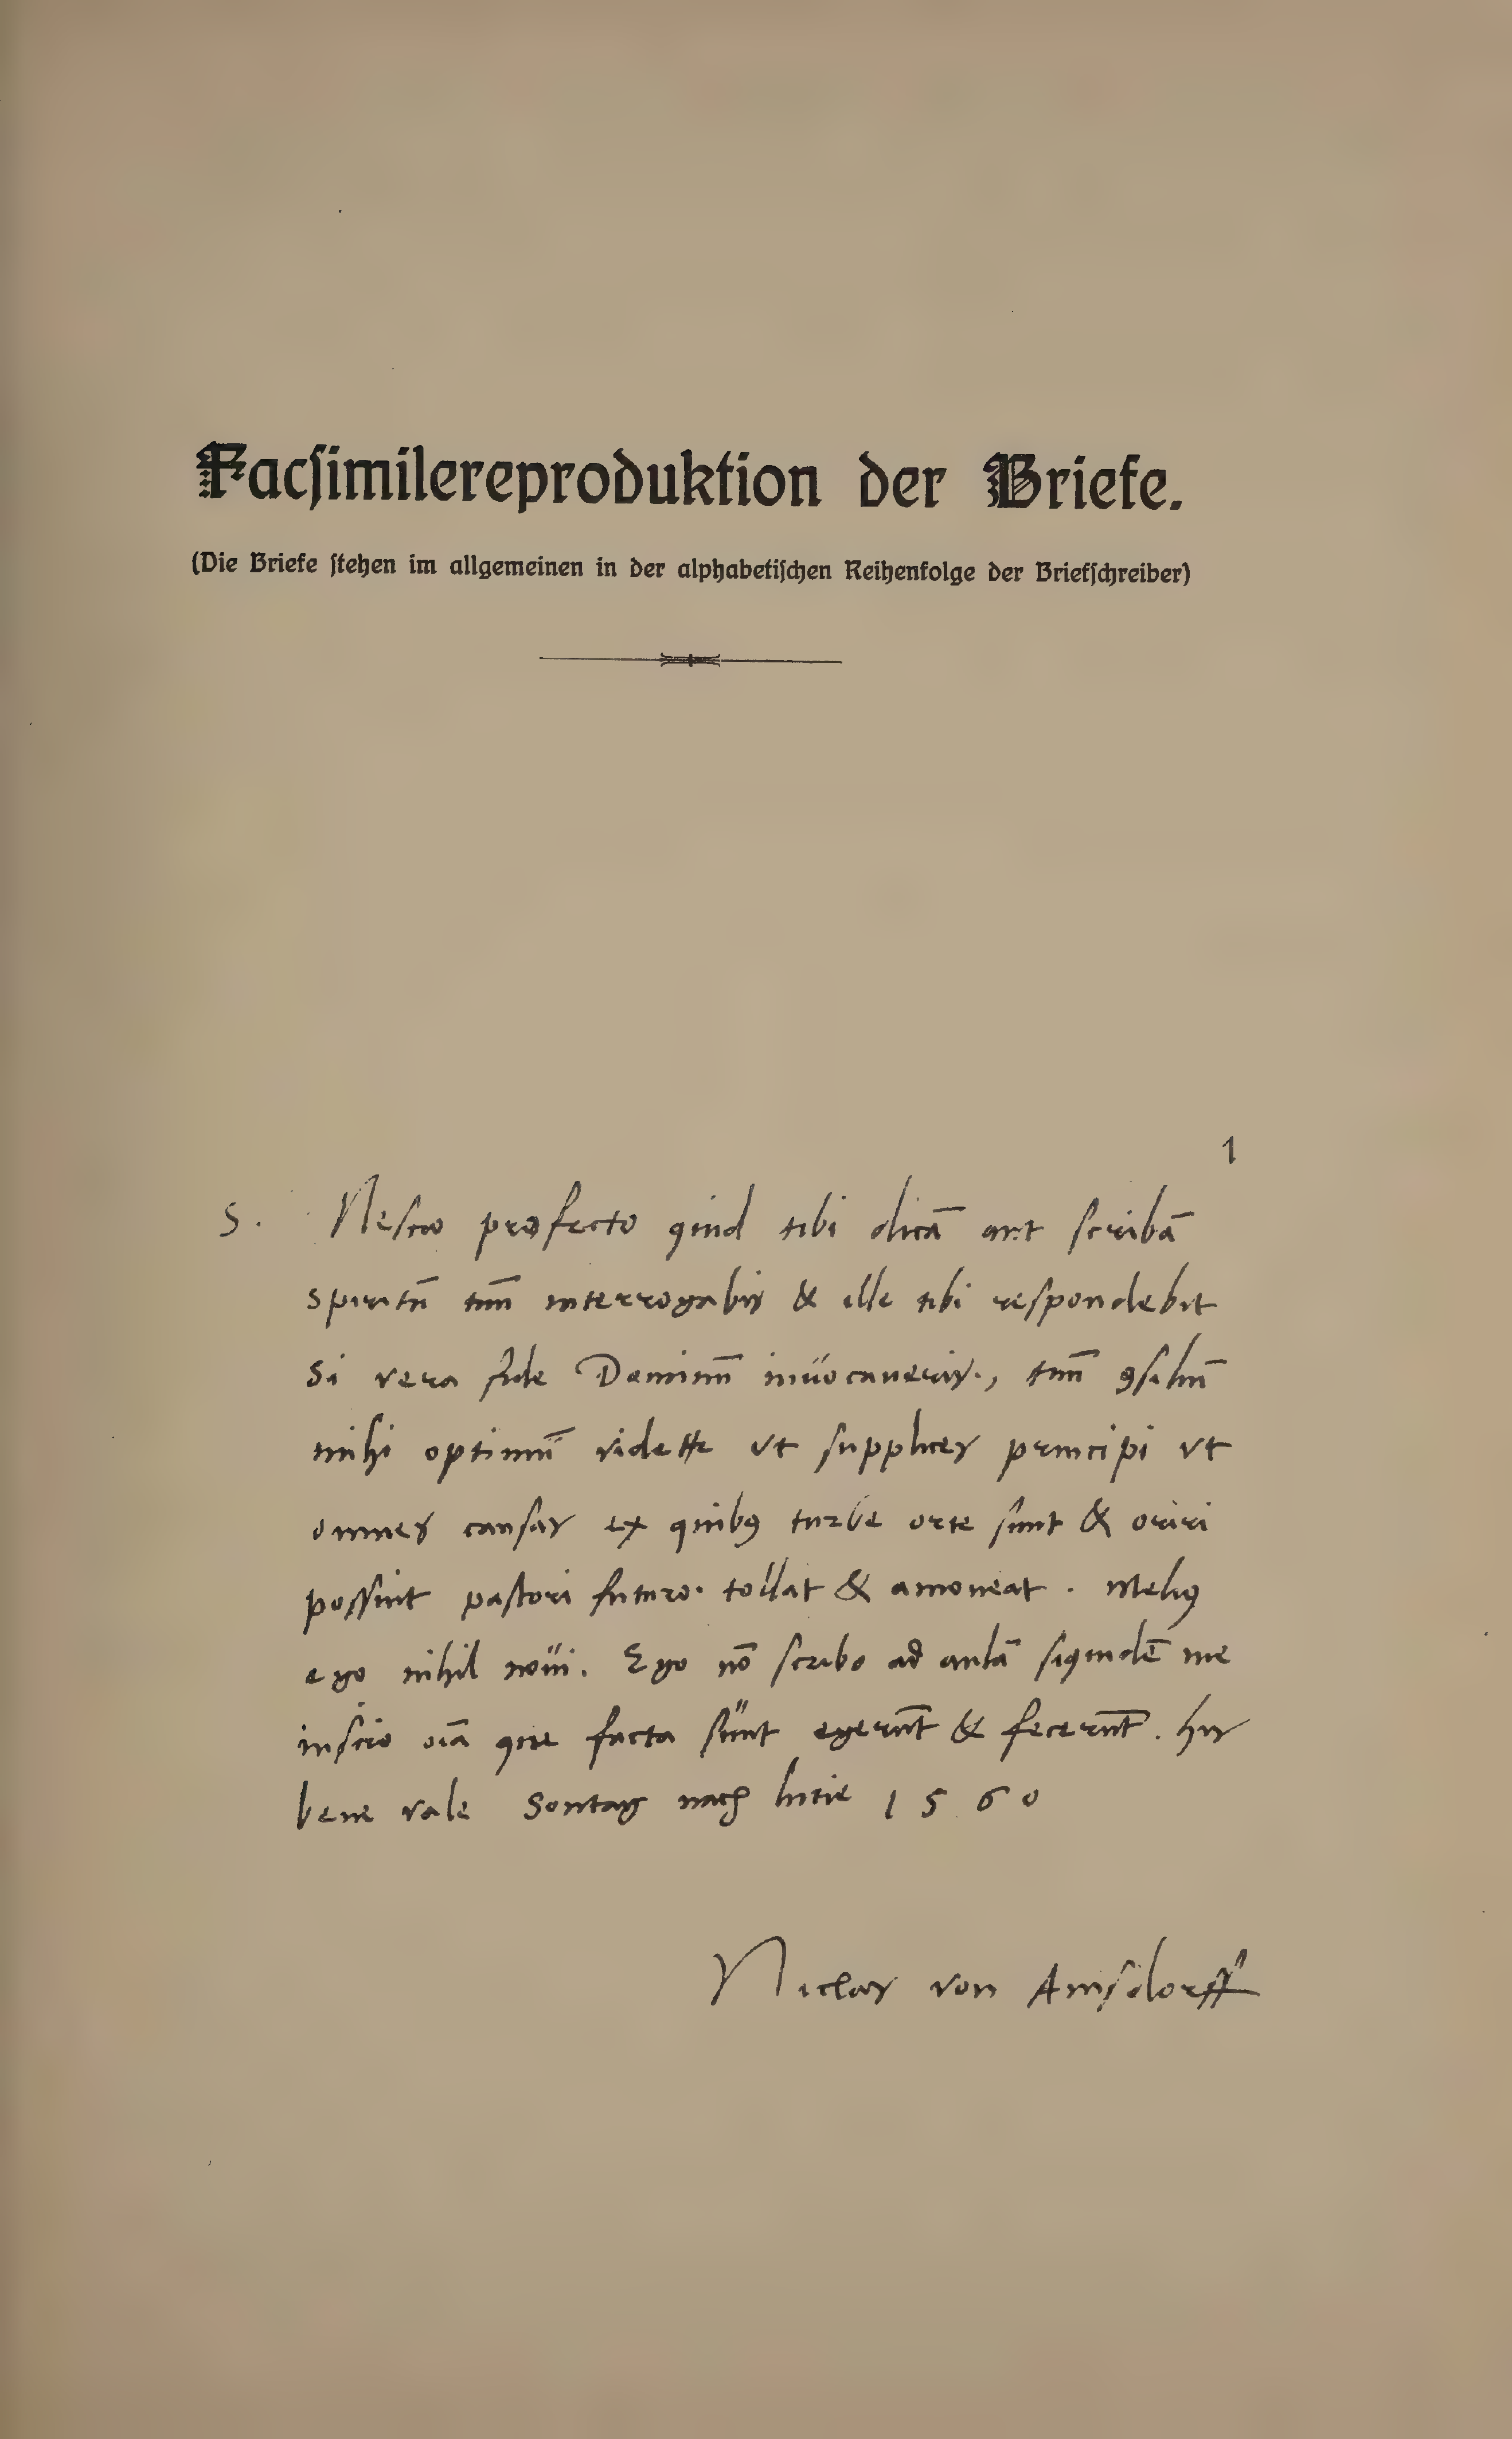 Facſimilereproduktion der Briefe.
(Die Briefe ſtehen im allgemeinen in der alphabetiſchen Reihenfolge der Briefſchreiber)
1
S. Neſcio profecto quid tibi dicā aut ſcribā
spiritū tuū interrogabis & ille tibi respondebit
Si vera fide Dominū inuocaueris., tuū ꝯſiliū
mihi optimū videtur vt ſupplices principi vt
omnes cauſas ex quibꝯ turbe orte ſunt & oriri
poſſint paſtori futuro tollat & amoueat . Meliꝯ
ego nihil noui. Ego nō ſcribo ad aulā ſiquidē me
inſcio oīa que facta ſunt egerūt & fecerūt. his
bene vale Sontag nach lucie 1560
Niclas von Amſdorff